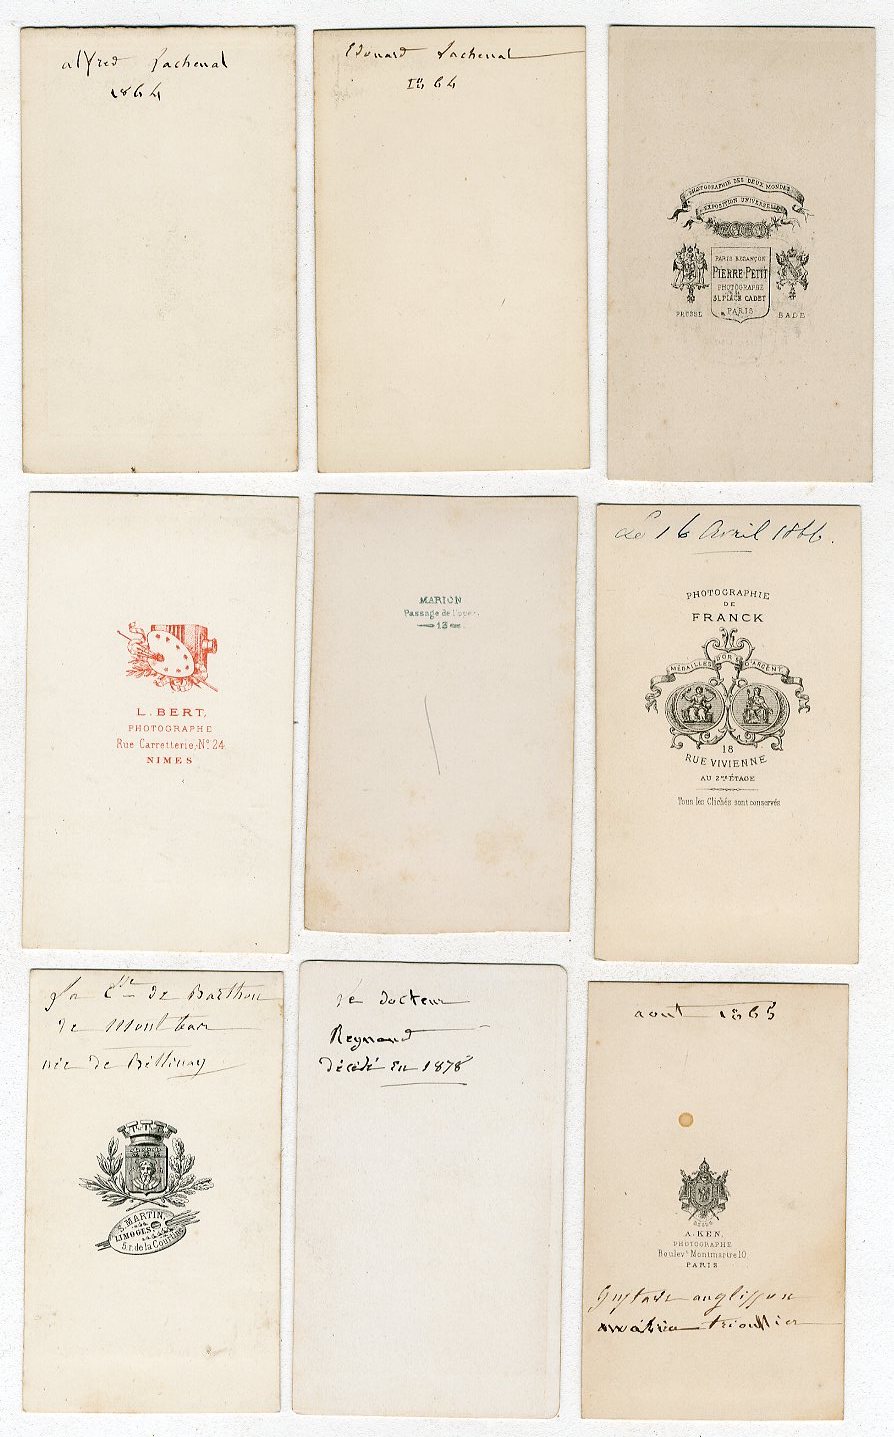 alfred Lachenal
1864
Edouard Lachenal
1864
PHOTOGRAPHIE DES DEUX MONDES
EXPOSITION UNIVERSELLE
PARIS BESANÇON
PIERRE PETIT
PHOTOGRAPHE
31, PLACE CADET
PARIS
PRUSSE
BADE
L. BERT,
PHOTOGRAPHE
Rue Carretterie, N° 24
NIMES
MARION
Passage de l'opera
13
Le 16 Avril 1866.
PHOTOGRAPHIE
DE
FRANCK
MÉDAILLES D'OR D'ARGENT
18
RUE VIVIENNE
AU 2me ÉTAGE
Tous les Clichés sont conservés
La Ctesse de Barthon
de Montbas
née de
S. MARTIN,
LIMOGES
5, r. de la Courtine
Le docteur
Reynaud
décédé en 1878
aout 1865
A. KEN,
PHOTOGRAPHE
Boulevt Montmartre 10
PARIS
Gustave anglissan
trioullier